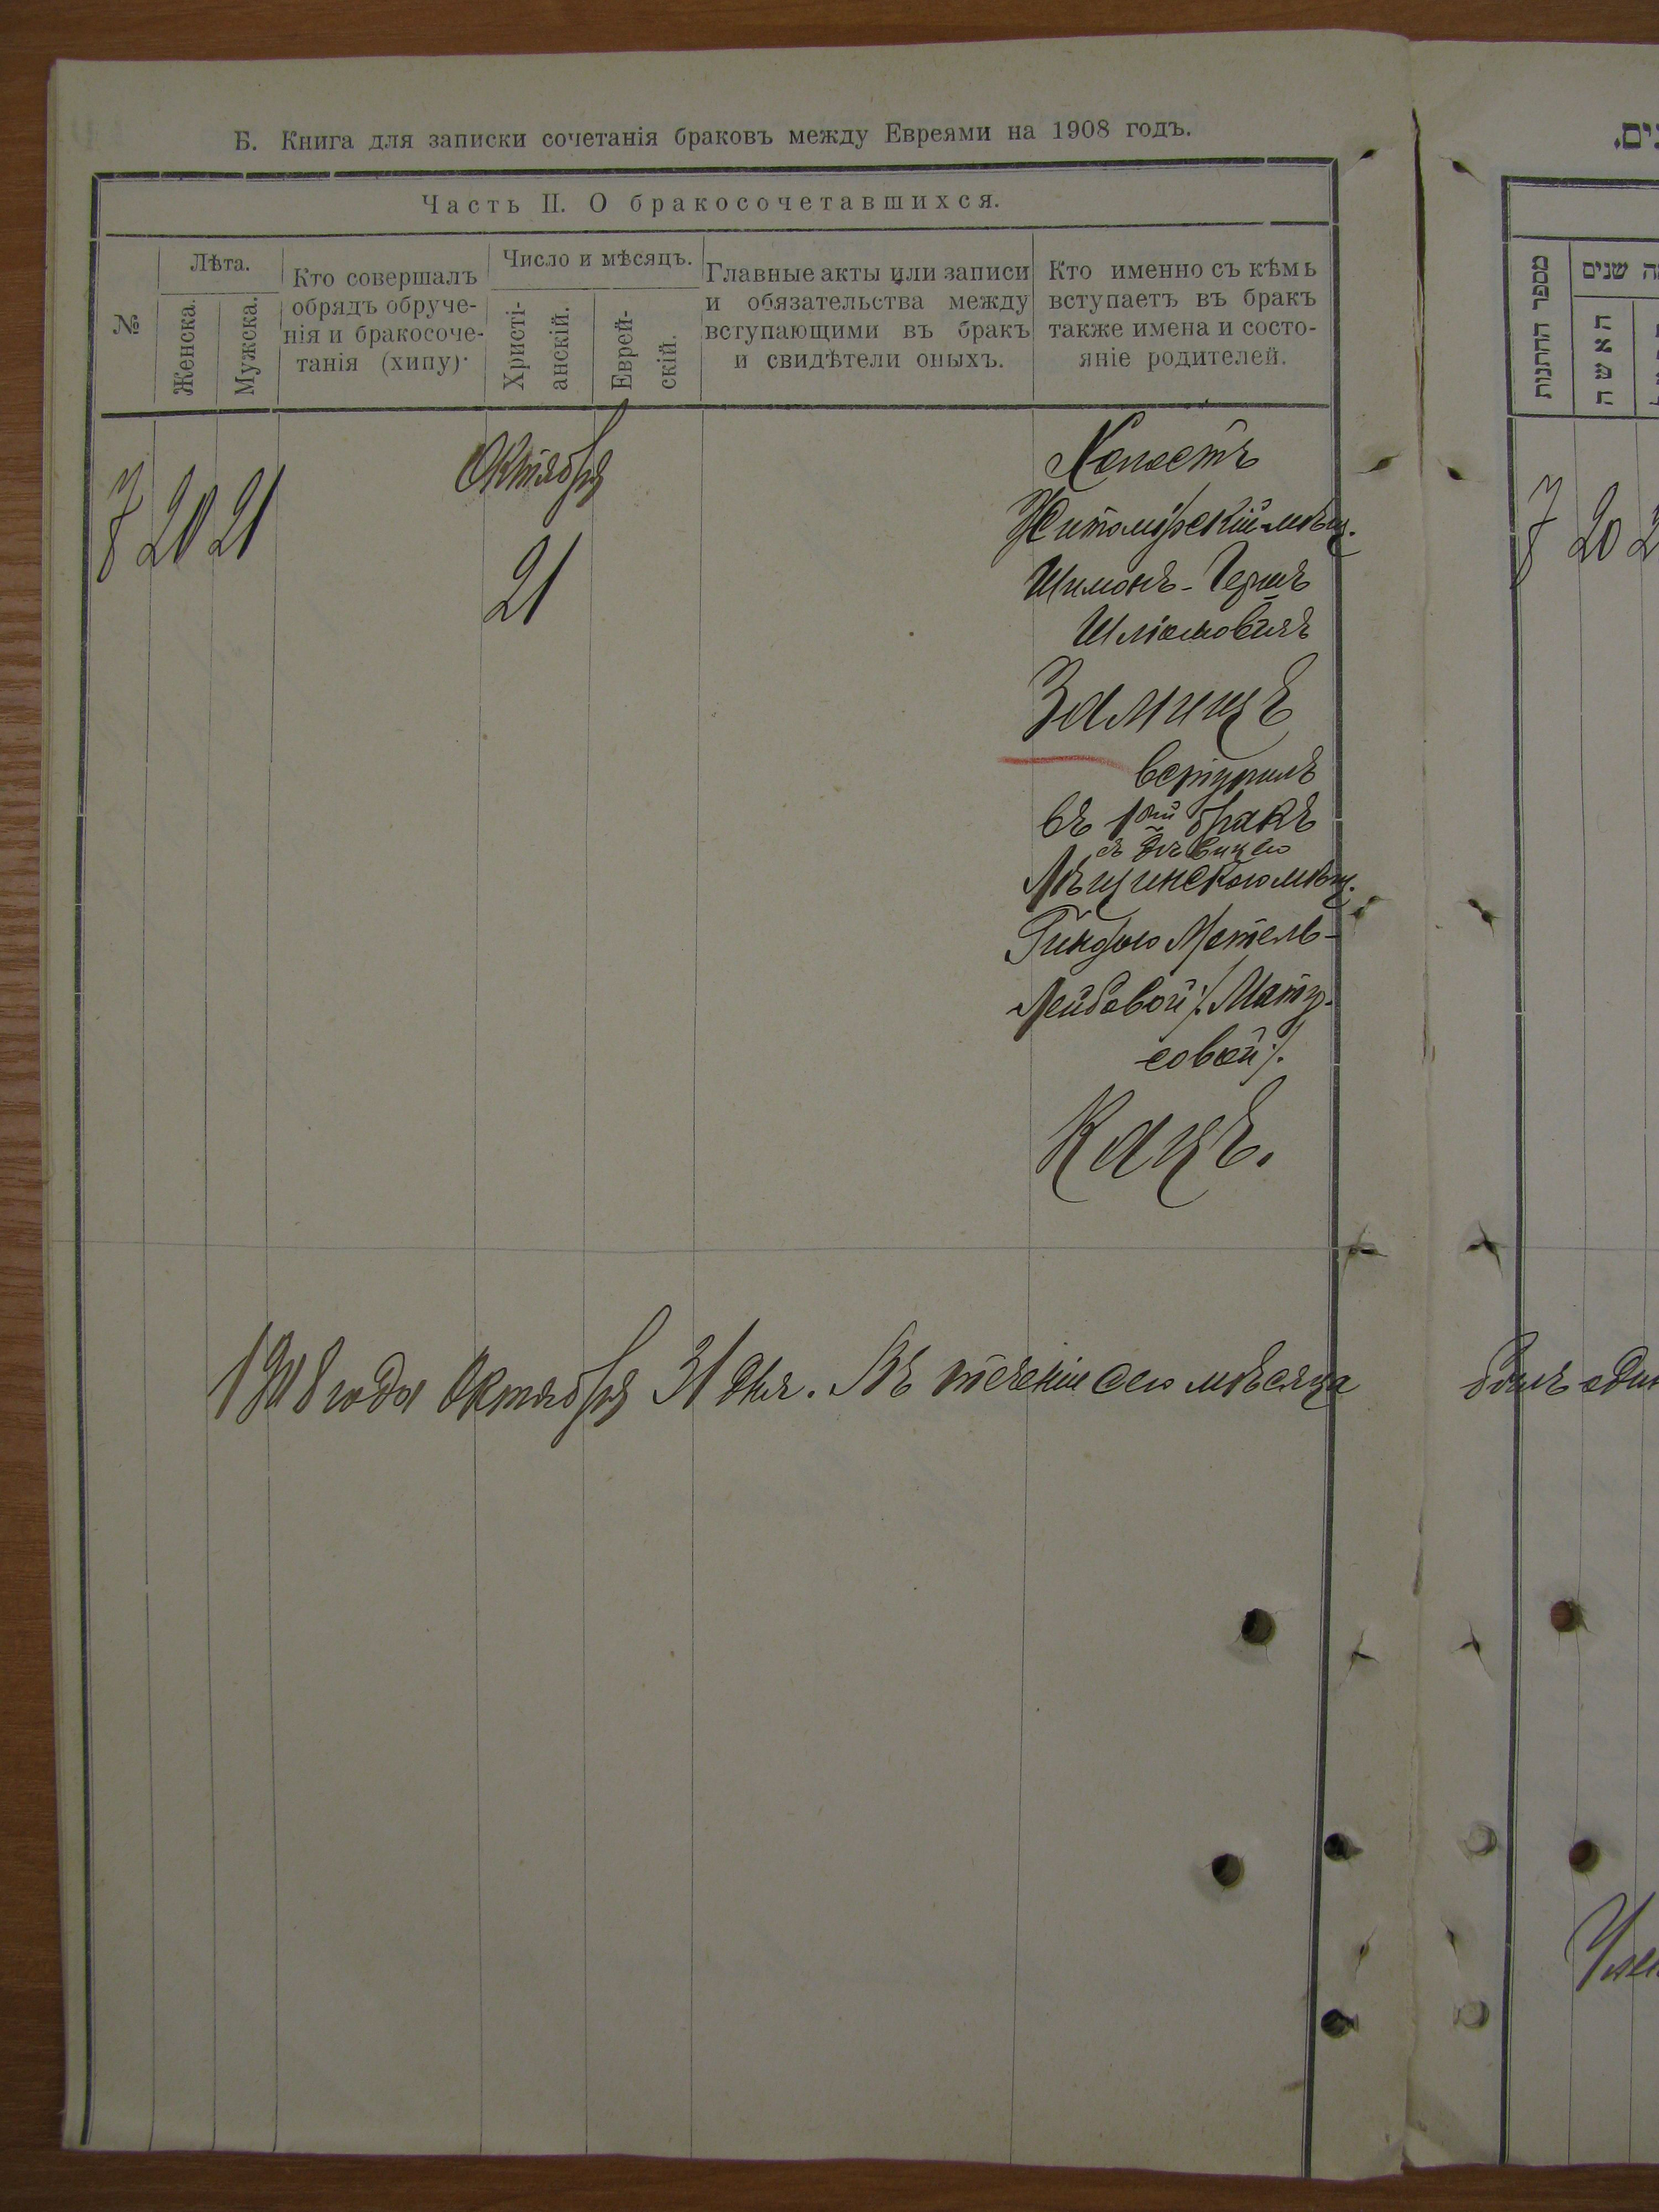 Б. Книга для записки сочетанія браковъ между Евреями на 1908 годъ.
Часть II. О бракосочетавшихся.
№
Лѣта.
Женска.
Мужска.
Кто совершалъ
обрядъ обруче-
нія и бракосоче-
танія (хипу).
Число и мѣсяцъ.
Христі-
анскій.
Еврей-
скій.
Главные акты или записи
и обязательства между
вступающими въ бракъ
и свидѣтели оныхъ.
Кто именно съ кѣмъ
вступаетъ въ бракъ
также имена и состо-
яніе родителей.
7 20 21
Октября
21
Холостъ
Житомірскій мѣщ.
Шимонъ-Гершъ
Шліомовичъ
Залищъ
вступилъ
въ 1ый бракъ
съ дѣвицею
Лѣщинскою мѣщ.
Гиндою Мотель-
Лейбовой /: Мату-
совой :/.
Кацъ.
1908 года Октября 31 дня. Въ теченіи сего мѣсяца
былъ един
מספר החתונות
שנים
האשה
7 20 2